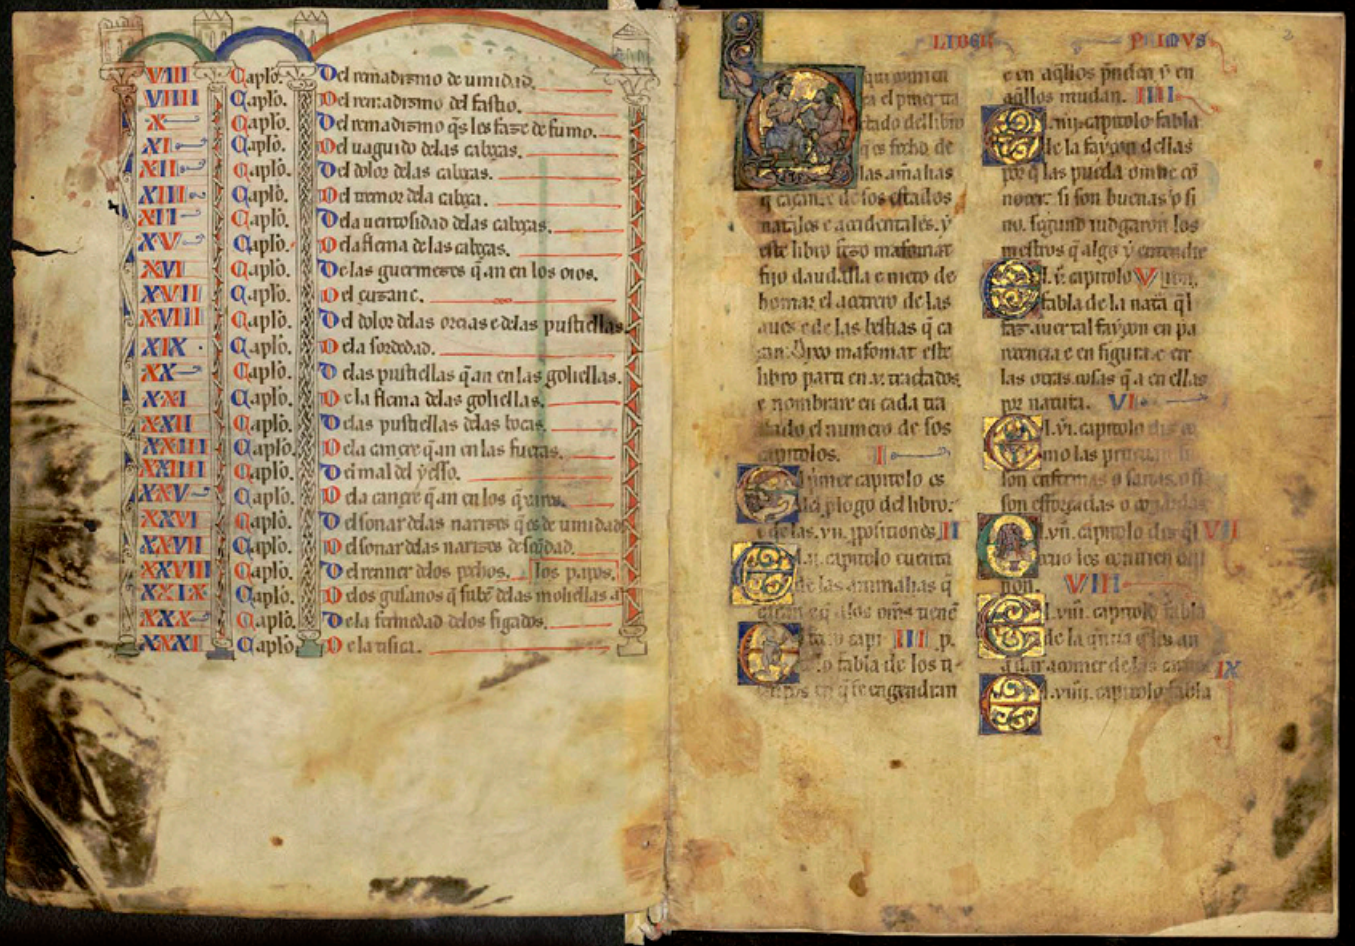 VIII Caplo. Del remadizmo de umidad.
VIIII Caplo. Del remadizmo del fastio.
X Caplo. Del remadizmo q̄s les faze de fumo.
XI Caplo. Del uaguido delas cabeças.
XII Caplo. Del dolor delas cabeças.
XIII Caplo. Del tremor dela cabeça.
XII Caplo. Dela uentosidad delas cabeças.
XV Caplo. Dela flema de las cabeças.
XVI Caplo. De las guermezes q̄ an en los oios.
XVII Caplo. Del
XVIII Caplo. Del dolor delas oreias e delas pustiellas
XIX Caplo. Dela sordedad.
XX Caplo. Delas pustiellas q̄ an en las goliellas.
XXI Caplo. De la flema delas goliellas.
XXII Caplo. Delas pustiellas delas bocas.
XXIII Caplo. Dela cancre q̄ an en las
XXIIII Caplo. Del mal del yesso.
XXV Caplo. Dela cancre q̄ an en los
XXVI Caplo. Del sonar delas narizes q̄ es de umidad
XXVII Caplo. Del sonar delas narizes de
XXVIII Caplo. Del renner delos pechos. los papos.
XXIX Caplo. Delos gusanos q̄ delas
XXX Caplo. Dela fermedad delos figados.
XXXI Caplo. De la tisica.
LIBER PRIMVS
qui comien
ça el primer tra
ctado del libro
q̄ es fecho de
las aīmalias
q̄ caçan. e de sos estados
nat̄ales e accidentales. y
este libro fizo mafomat
fijo daudalla e nieto de
homar el acetrero de las
aues e de las bestias q̄ ca
çan. Dixo mafomat este
libro parti en .v. tractados.
e nombrare en cada tra
ctado el numero de sos
capitolos. I
primer capitolo es
del plogo del libro.
e de las .vii. pposiciones II
El .ii. capitolo cuenta
de las animalias q̄
caçan e q̄ a los oms tienē
capi III p.
fabla de los ti
en q̄ se engendran
e en aq̄llos en
aq̄llos mudan. IIII
El .iiii. capitolo fabla
de la fayçon dellas
por q̄ las pueda omne co
nocer. si son buenas o si
no. segund iudgaron los
q̄ algo y entendie
El .v. capitolo V
fabla de la nat̄a q̄l
faz auer tal fayçon en pa
recencia e en figura. e en
las otras cosas q̄ a en ellas
por natura. VI
El .vi. capitolo dize co
mo las
son enfermas o sanas. o si
son efforçadas o couardas
El .vii. capitolo dize q̄l VII
non. VIII
El .viii. capitolo fabla
de la
a dar a comer de las IX
El .viiii. capitolo fabla